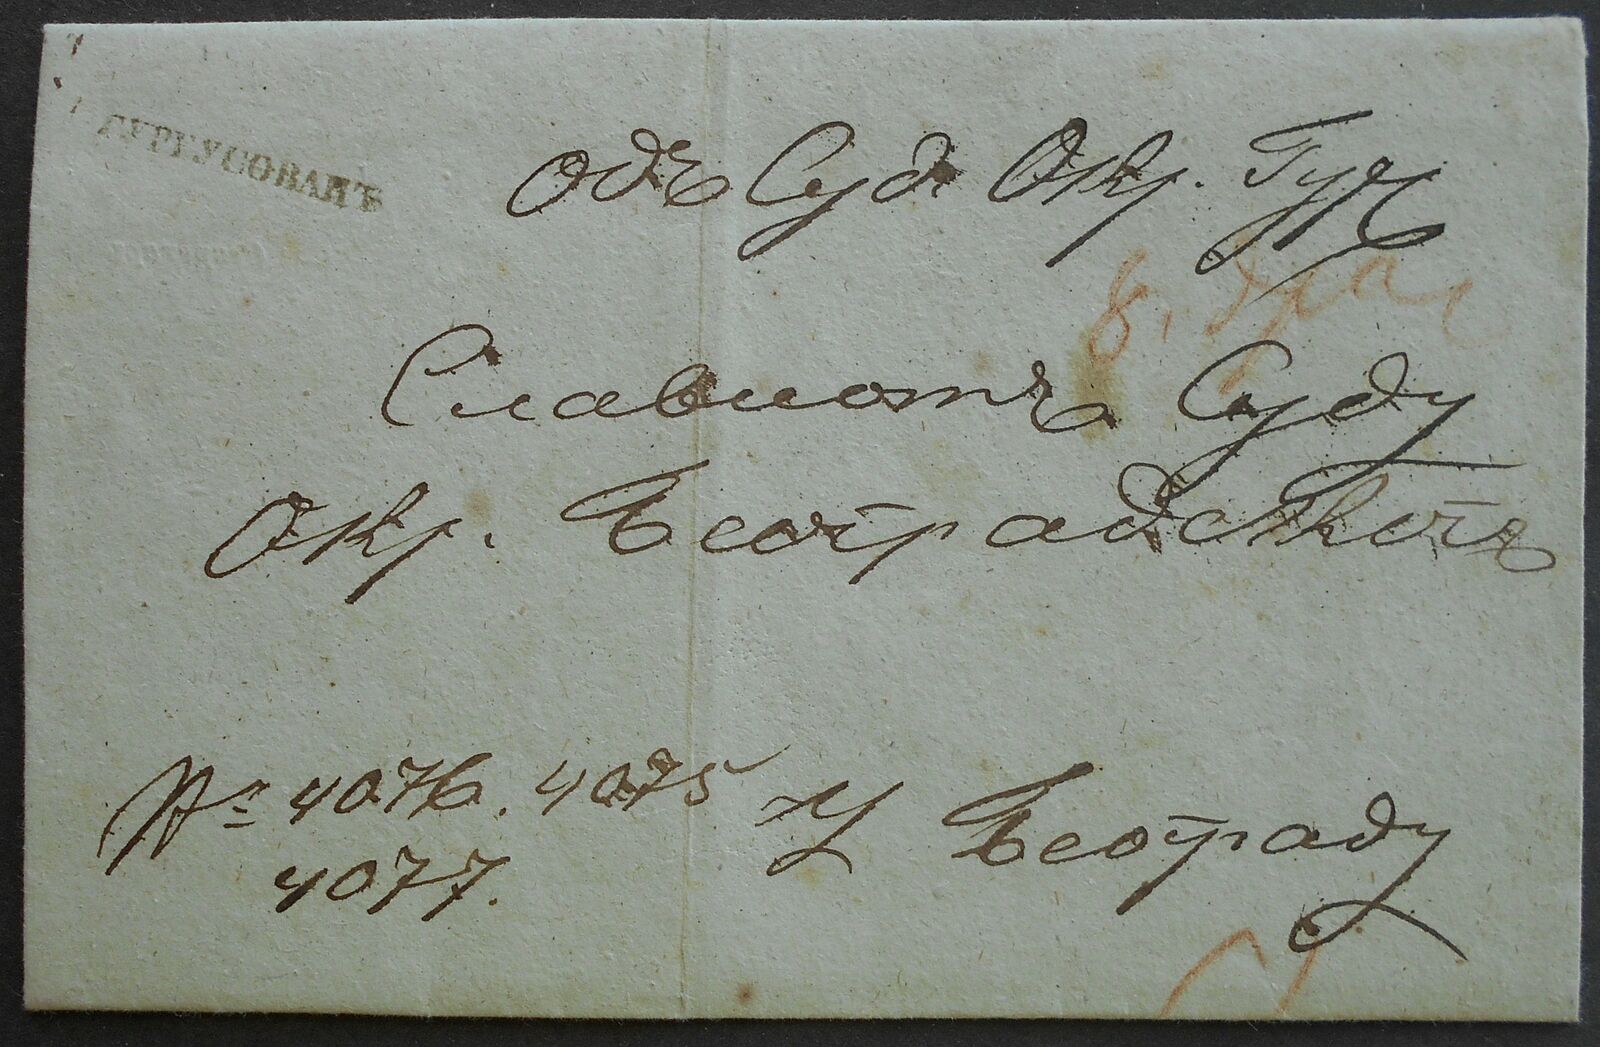 ГУРГУСОВАЦЪ
Одъ Суда Окр. Гург
8. дра
Славномъ Суду
Окр. Београдскогъ
№ 4076. 4075
4077.
У Београду